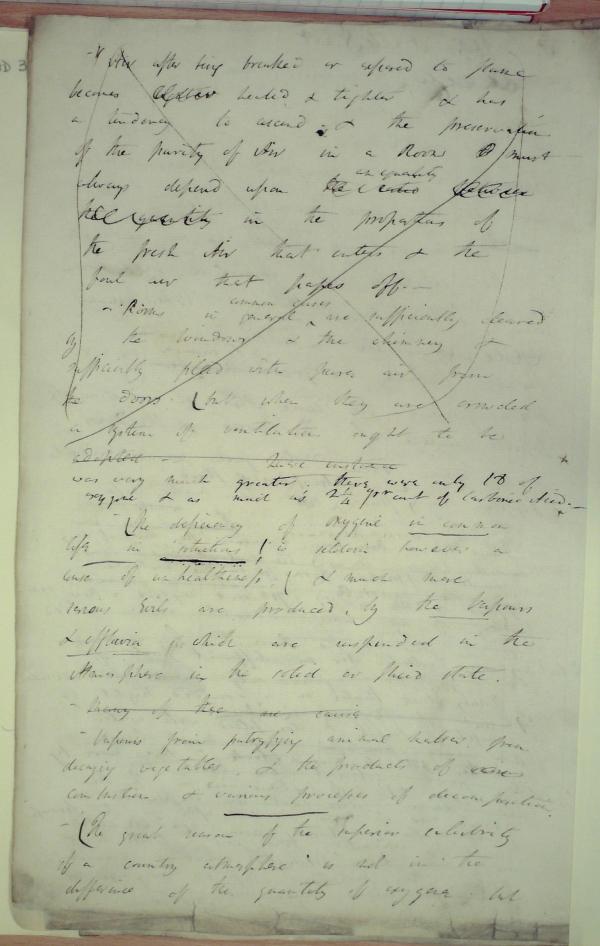 - Air after being breathed or exposed to flame
becomes heated & lighter & has
a tendency to ascend; & the preservation
of the purity of Air in a Room must
always depend upon an equality
the quantity in the proportions of
the fresh Air that enters & the
foul air that passes off. -
- Rooms in general, common cases are sufficiently cleared
by the windows & the chimney &
sufficiently filled with purer air from
the doors. (but when they are crowded
a system of ventilation ought to be
adopted -
was very much greater. there were only 18 of
oxygene & as much as 2 1/4 per cent of Carbonic Acid. -
- (The deficiency of oxygene in common
life in situations is seldom however a
cause of unhealthiness. ( & much more
serious Evils are produced, by the vapours
& effluvia which are suspended in the
Atmosphere in the solid or fluid state.
- many of these are
- Vapours from putrifying animal matter from
decaying vegetables. & the products of
combustion & various processes of decomposition.
- (The great reason of the superior salubrity
of a country atmosphere is not in the
difference of the quantity of oxygene but